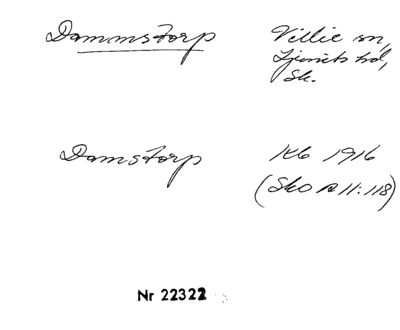 Dammstorp
Villie sn,
Ljunits hd,
Sk.
Damstorp
Kb 1916
(SkO A 11:118)
Nr 22322